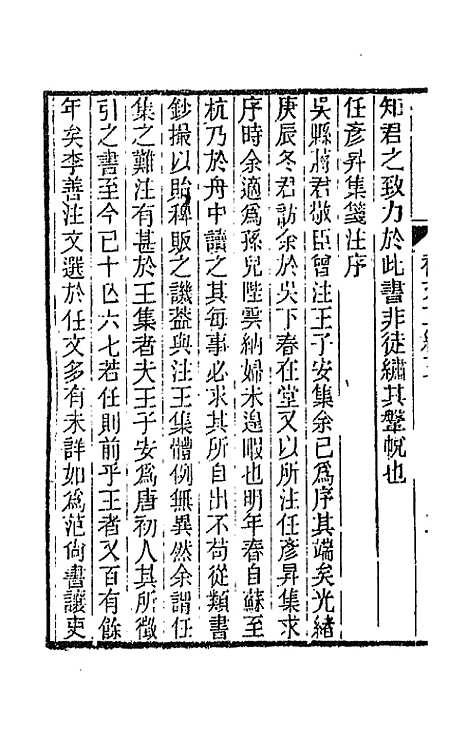 知君之致力於此書非徒繡其鞶帨也
任彥昇集箋注序
吳縣蔣君敬臣曾注王子安集余已爲序其端矣光緒
庚辰冬君訪余於吳下春在堂又以所注任彥昇集求
序時余適爲孫兒陛雲納婦未遑暇也明年春自蘇至
杭乃於舟中讀之其每事必求其所自出不苟從類書
鈔撮以貽稗販之譏蓋與注王集體例無異然余謂任
集之難注有甚於王集者夫王子安爲唐初人其所徵
引之書至今已十亾六七若任則前乎王者又百有餘
年矣李善注文選於任文多有未詳如爲范尙書讓吏